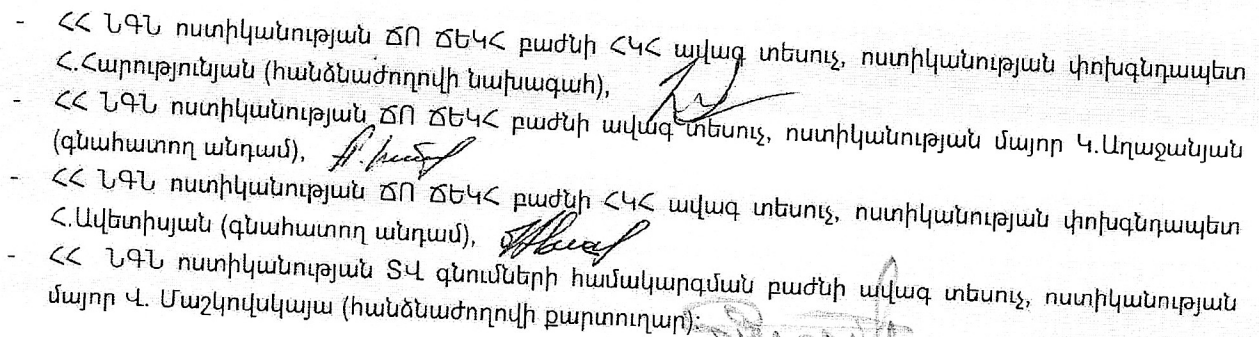 - ՀՀ ՆԳՆ ոստիկանության ՃՈ ՃԵԿՀ բաժնի ՀԿՀ ավագ տեսուչ, ոստիկանության փոխգնդապետ
Հ.Հարությունյան (հանձնաժողովի նախագահ),
- ՀՀ ՆԳՆ ոստիկանության ՃՈ ՃԵԿՀ բաժնի ավագ տեսուչ, ոստիկանության մայոր Կ.Աղաջանյան
(գնահատող անդամ),
- ՀՀ ՆԳՆ ոստիկանության ՃՈ ՃԵԿՀ բաժնի ՀԿՀ ավագ տեսուչ, ոստիկանության փոխգնդապետ
Հ.Ավետիսյան (գնահատող անդամ),
- ՀՀ ՆԳՆ ոստիկանության ՏՎ գնումների համակարգման բաժնի ավագ տեսուչ, ոստիկանության
մայոր Վ. Մաշկովսկայա (հանձնաժողովի քարտուղար):